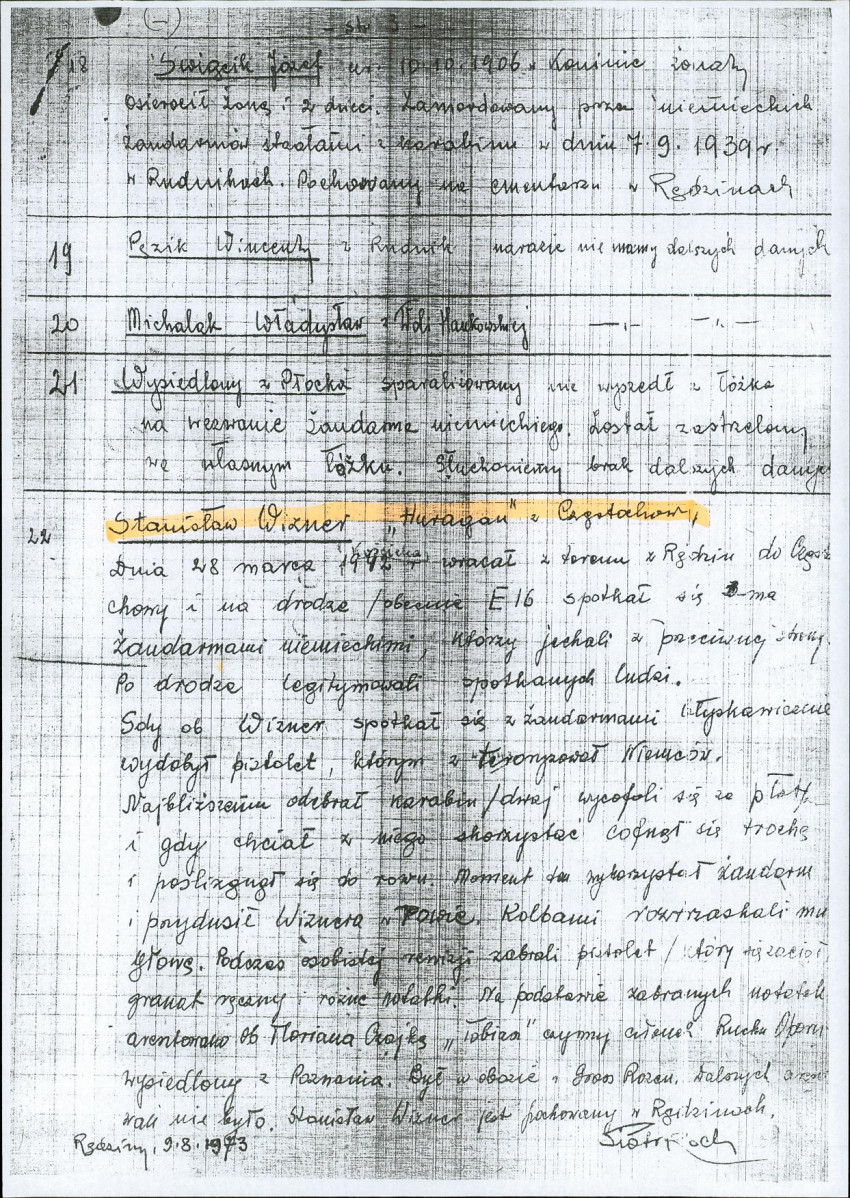 (-)
- str 3 -
18 Święcik Józef ur. 10.10.1906 w Koninie żonaty
osierocił żonę i 2 dzieci. Zamordowany przez niemieckich
żandarmów strzałami z karabinu w dniu 7.9.1939 r.
w Rudnikach. Pochowany na cmentarzu w Rędzinach
19 Pęzik Wincenty z Rudnik narazie nie mamy dalszych danych
20 Michalak Władysław z Woli Hankowskiej —„— —„—
21 Wysiedlony z Płocka sparaliżowany nie wyszedł z łóżka
na wezwanie żandarma niemieckiego. Został zastrzelony
we własnym łóżku. Głuchoniemy brak dalszych danych
22 Stanisław Wizner „Huragan" z Częstochowy,
Dnia 28 marca 1942 r wracał z terenu z Rędzin do Często
chowy i na drodze /obecnie E 16 spotkał się 3-ma
żandarmami niemieckimi, którzy jechali z przeciwnej strony.
Po drodze legitymowali spotkanych ludzi.
Gdy ob Wizner spotkał się z żandarmami błyskawicznie
wydobył pistolet, którym z teroryzował Niemców.
Najbliższemu odebrał karabin /dwaj wycofali się za
i gdy chciał z niego skorzystać cofnął się trochę
i poślizgnął się do rowu. Moment ten wykorzystał żandarm
i przydusił Wiznera w rowie. Kolbami roztrzaskali mu
głowę. Podczas osobistej rewizji zabrali pistolet /który się zaciął
granat ręczny i różne notatki. Na podstawie zabranych notatek
aresztowano Ob Floriana Czajkę „Tobiza" czynny członek Ruchu Oporu
wysiedlony z Poznania. Był w obozie w Gross Rosen. Dalszych areszto
wań nie było. Stanisław Wizner jest pochowany w Rędzinach.
Rędziny, 9.8.1973